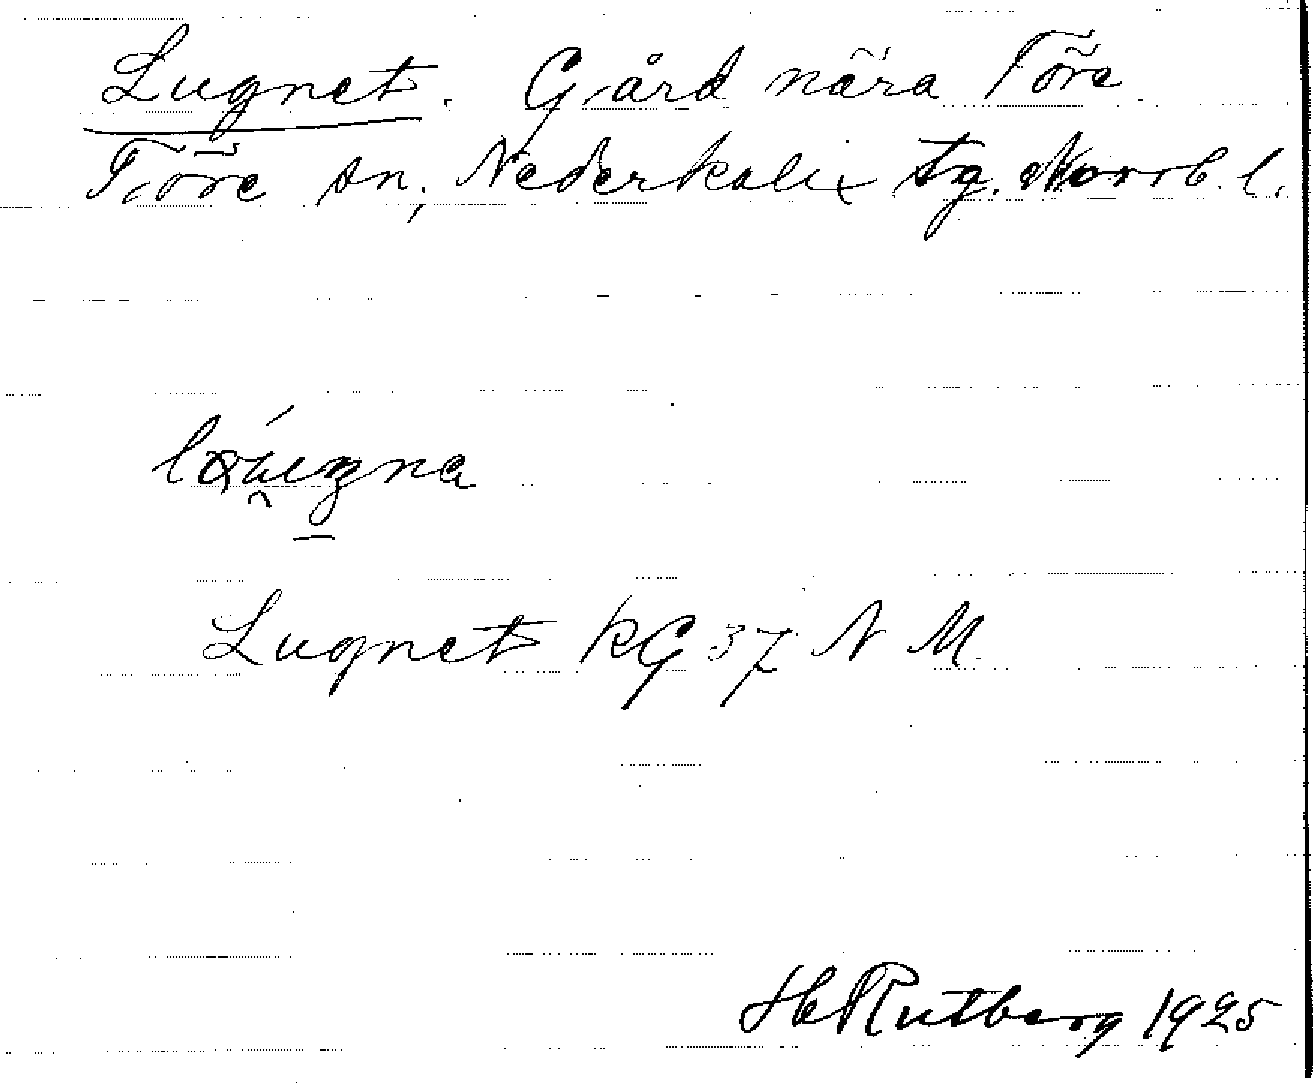 Lugnet. Gård nära Töre
Töre sn, Nederkalix tg. Norrb. l.
Lugnet KG 37 N M
H Rutberg 1925